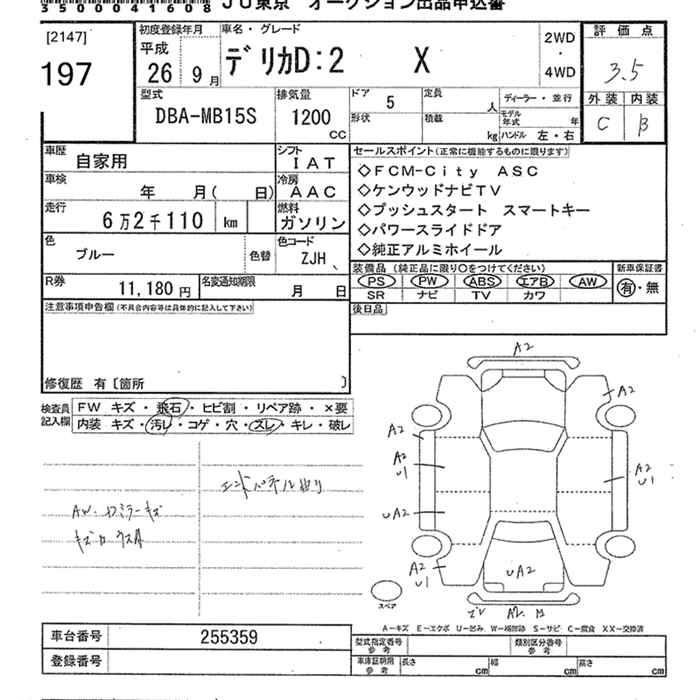 35000041608 JU東京 オークション出品申込書
[2147]
197
初度登録年月
平成
26 9月
車名・グレード
デリカD:2 X
2WD
・
4WD
評価点
3.5
外装 内装
C B
型式
DBA-MB15S
排気量
1200
CC
ドア 5
定員
人
形状
積載
kg
ディーラー・並行
モデル年式 年
ハンドル 左・右
車歴 自家用
シフト IAT
車検 年 月( 日)
冷房 AAC
走行 6万2千110 km
燃料 ガソリン
色 ブルー
色替
色コード ZJH
R券 11,180円
名変通知期限 月 日
セールスポイント(正常に機能するものに限ります)
◇FCM-City ASC
◇ケンウッドナビTV
◇プッシュスタート スマートキー
◇パワースライドドア
◇純正アルミホイール
装備品(純正品に限り○をつけてください)
新車保証書
PS PW ABS エアB AW
SR ナビ TV カワ
有・無
後日品
注意事項申告欄(不具合内容等は具体的に記入して下さい)
修復歴 有〔箇所 〕
検査員記入欄
FW キズ・飛石・ヒビ割・リペア跡・×要
内装 キズ・汚レ・コゲ・穴・スレ・キレ・破レ
AW、
キズ
エンドパネル
A2
A2
A2
A2
U1
A2
U1
UA2
UA2
A2
U1
スペア
A-キズ E-エクボ U-凹み W-補修跡 S-サビ C-腐食 XX-交換済
車台番号 255359
登録番号
型式指定番号
参考
類別区分番号
参考
車庫証明用
参考
長さ cm
幅 cm
高さ cm